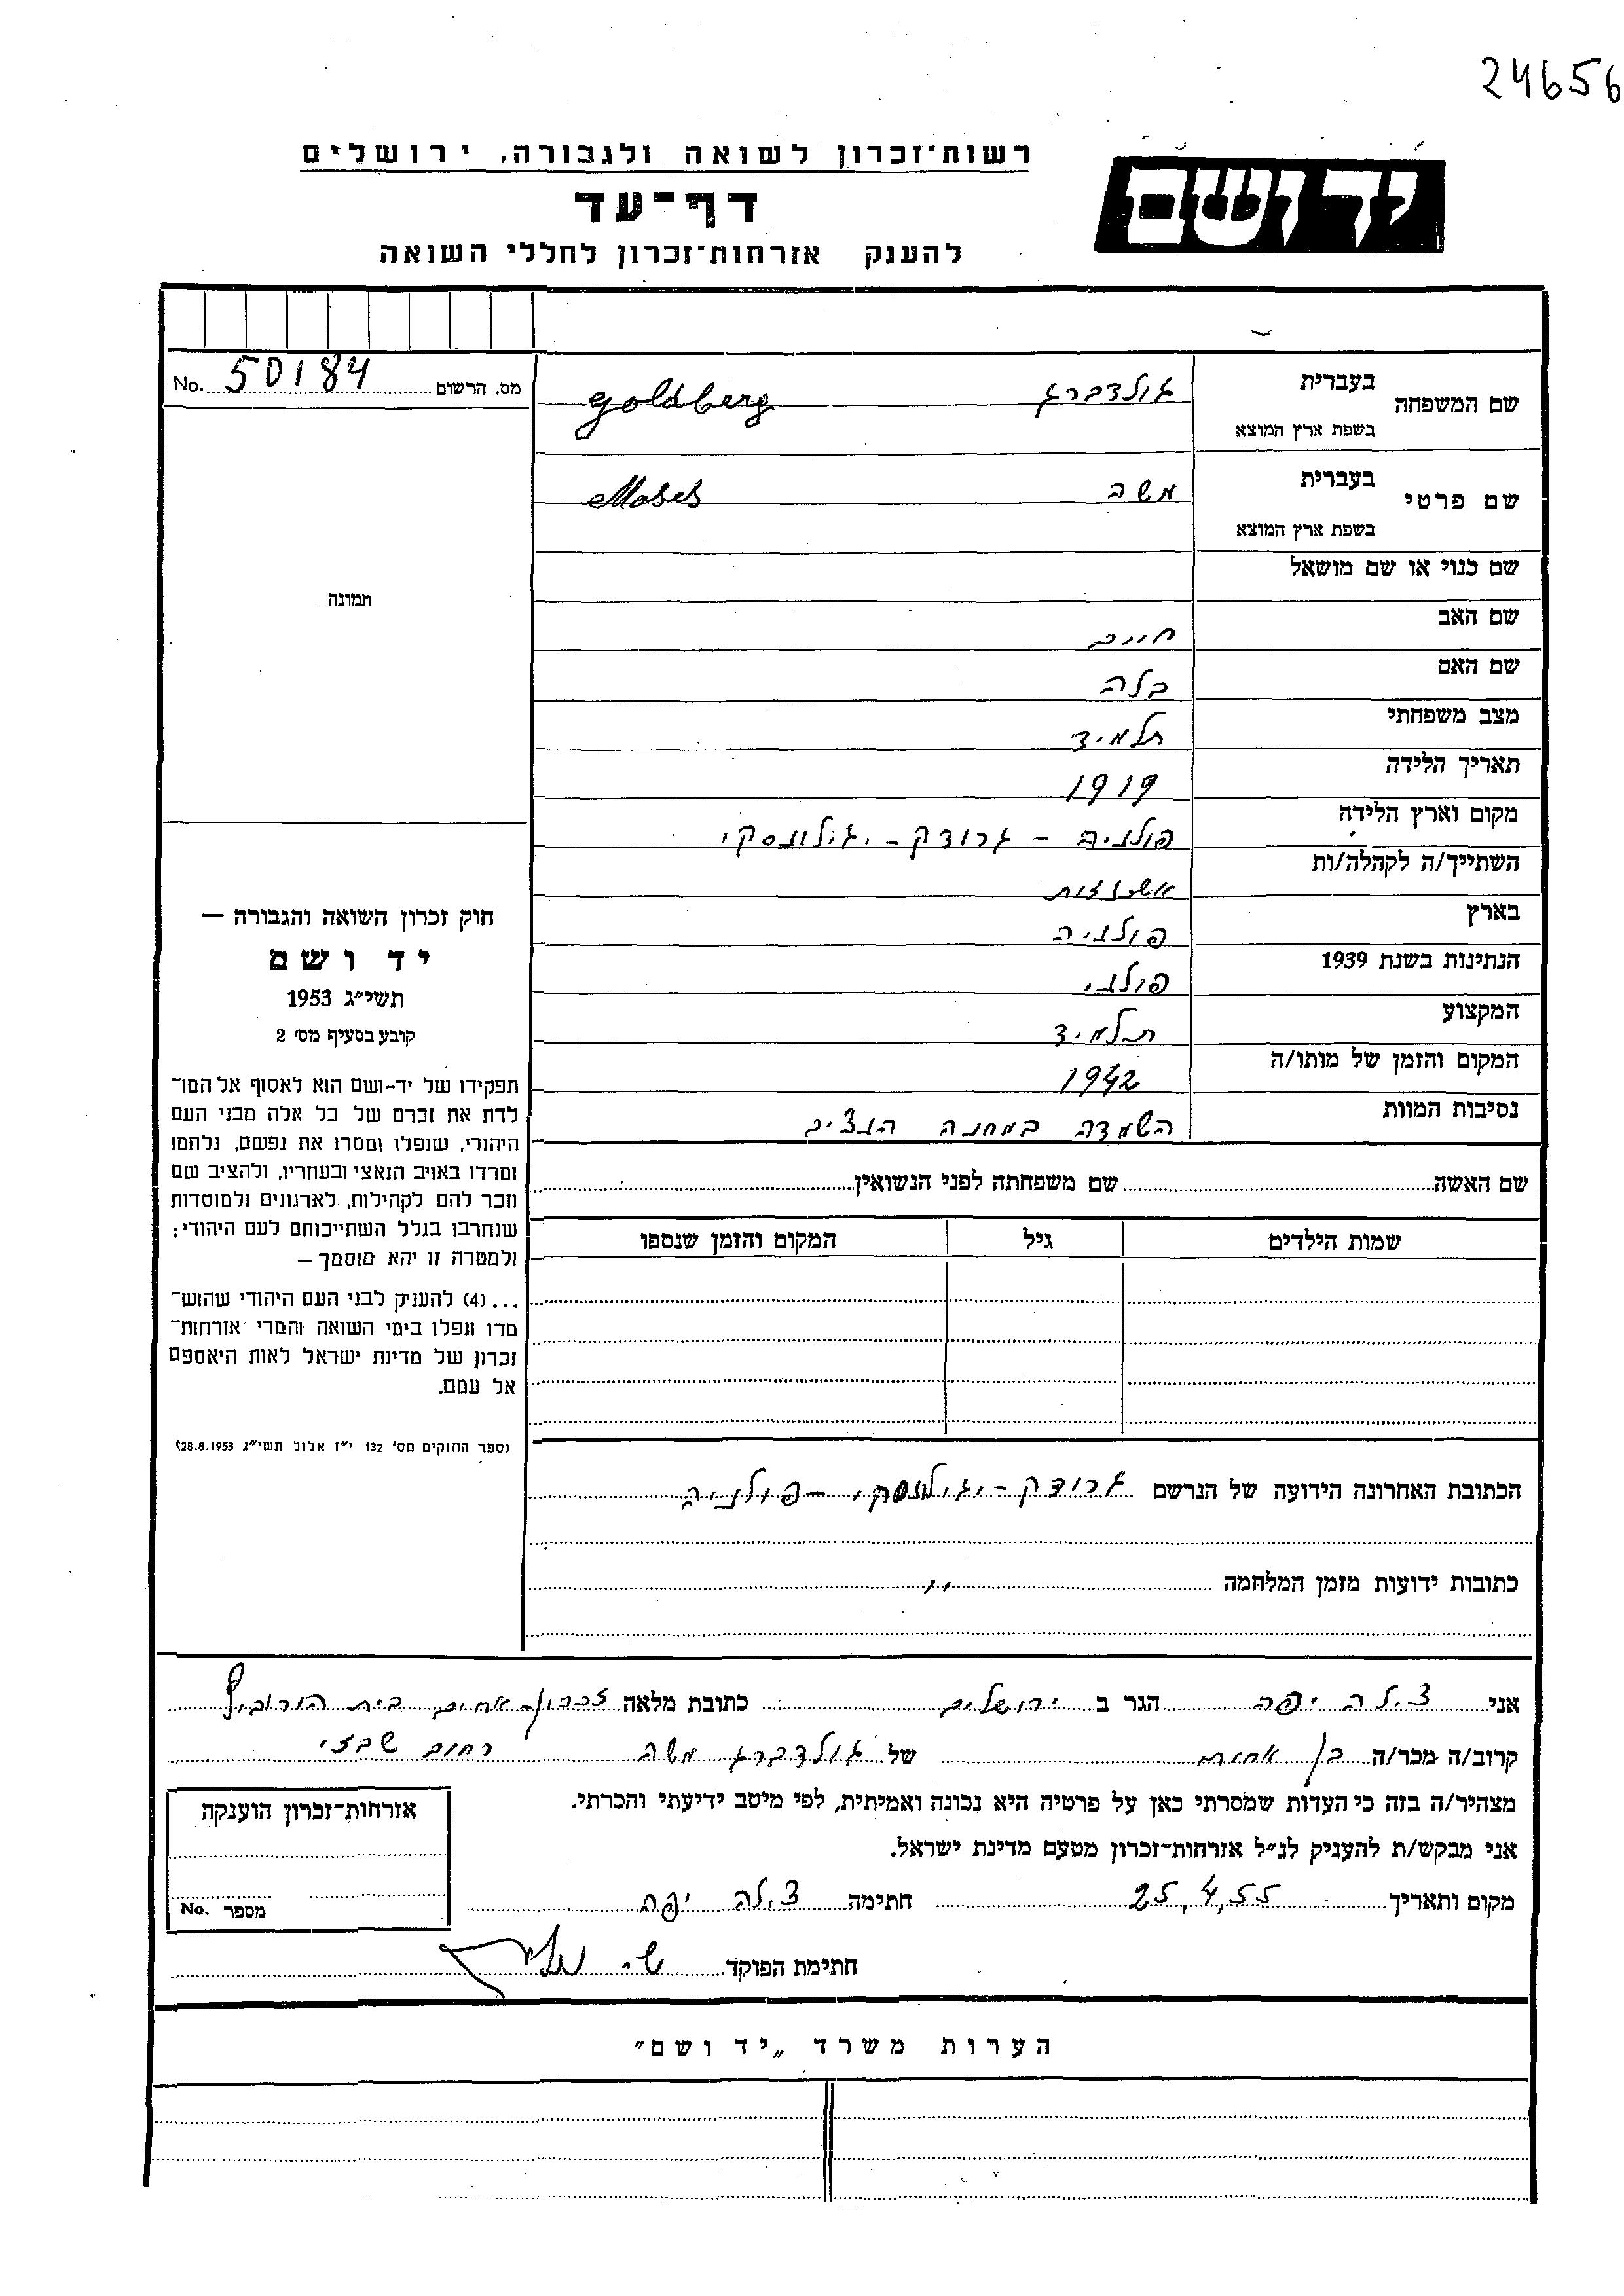 24656
רשות־זכרון לשואה ולגבורה, ירושלים
יד ושם
דף־עד
להענק אזרחות־זכרון לחללי השואה
מס. הרשום 50184 No.
שם המשפחה בעברית גולדברג Goldberg
בשפת ארץ המוצא
שם פרטי בעברית משה Moses
בשפת ארץ המוצא
שם כנוי או שם מושאל
תמונה
שם האב חיים
שם האם בלה
מצב משפחתי תלמיד
תאריך הלידה 1919
מקום וארץ הלידה פולניה - גרודק - יגילונסקי
השתייך/ה לקהלה/ות אשכנזית
בארץ פולניה
הנתינות בשנת 1939 פולני
המקצוע תלמיד
המקום והזמן של מותו/ה 1942
נסיבות המוות השמדה במחנה הנצים
שם האשה שם משפחתה לפני הנשואין
שמות הילדים גיל המקום והזמן שנספו
חוק זכרון השואה והגבורה —
יד ושם
תשי״ג 1953
קובע בסעיף מס׳ 2
תפקידו של יד-ושם הוא לאסוף אל המו־
לדת את זכרם של כל אלה מבני העם
היהודי, שנפלו ומסרו את נפשם, נלחמו
ומרדו באויב הנאצי ובעוזריו, ולהציב שם
וזכר להם לקהילות, לארגונים ולמוסדות
שנחרבו בגלל השתייכותם לעם היהודי;
ולמטרה זו יהא מוסמך —
...(4) להעניק לבני העם היהודי שהוש־
מדו ונפלו בימי השואה והמרי אזרחות־
זכרון של מדינת ישראל לאות היאספם
אל עמם.
(ספר החוקים מס׳ 132 י״ז אלול תשי״ג 28.8.1953)
הכתובת האחרונה הידועה של הנרשם גרודק - יגילונסקי - פולניה
כתובות ידועות מזמן המלחמה "
אני צילה יפה הגר ב ירושלים כתובת מלאה זכרון-אחים בית הורוביץ
קרוב/ה מכר/ה בן אחות של גולדברג משה רחוב שבזי
מצהיר/ה בזה כי העדות שמסרתי כאן על פרטיה היא נכונה ואמיתית, לפי מיטב ידיעתי והכרתי.
אני מבקש/ת להעניק לנ״ל אזרחות־זכרון מטעם מדינת ישראל.
מקום ותאריך 25,4,55 חתימה צילה יפה
חתימת הפוקד
אזרחות־זכרון הוענקה
מספר No.
הערות משרד „יד ושם״